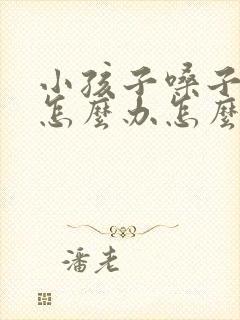 小孩子嗓子
怎麼办怎麼
潘老